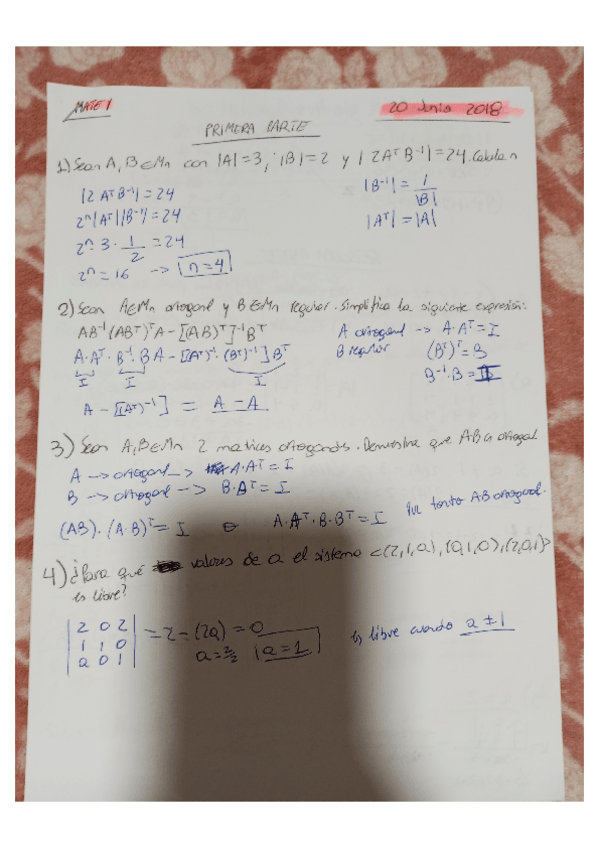 MATE 1
20 Junio 2018
PRIMERA PARTE
1) Sean A, B ∈ Mn con |A| = 3, |B| = 2 y |2AᵀB⁻¹| = 24. Calcula n
|2AᵀB⁻¹| = 24
2ⁿ|Aᵀ||B⁻¹| = 24
2ⁿ·3·1/2 = 24
2ⁿ = 16 -> n = 4
|B⁻¹| = 1/|B|
|Aᵀ| = |A|
2) Sean A∈Mn ortogonal y B∈Mn regular. Simplifica la siguiente expresión:
AB⁻¹(ABᵀ)ᵀA - [(AB)ᵀ]⁻¹Bᵀ
A·Aᵀ·B⁻¹·BA - [(Aᵀ)⁻¹·(Bᵀ)⁻¹]Bᵀ
I I I
A - [(Aᵀ)⁻¹] = A - A
A ortogonal -> A·Aᵀ = I
B regular (Bᵀ)ᵀ = B
B⁻¹·B = I
3) Sean A, B∈Mn 2 matrices ortogonals. Demuestra que AB a ortogal
A -> ortogonal -> A·Aᵀ = I
B -> ortogonal -> B·Bᵀ = I
(AB)·(A·B)ᵀ = I A·Aᵀ·B·Bᵀ = I Por tanto AB ortogonal.
4) ¿Para que valores de a el sistema <(2,1,a),(0,1,0),(2,0,1)>
es libre?
2 0 2
1 1 0 = 2 - (2a) = 0
a 0 1 a = 2/2 a = 1
es libre cuando a ≠ 1